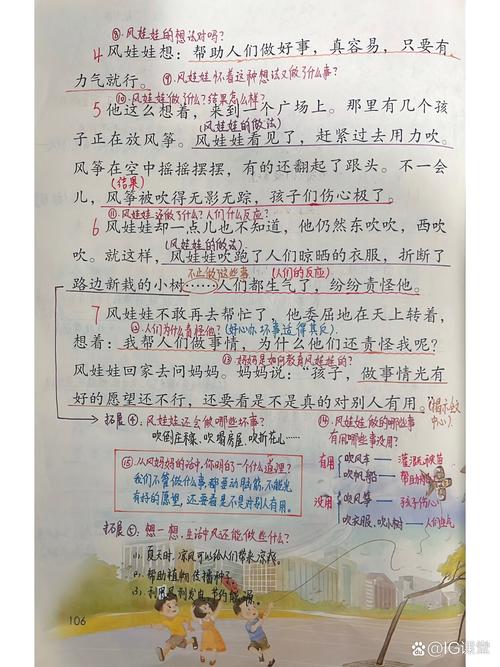 ⑧风娃娃的想法对吗?
4 风娃娃想:帮助人们做好事,真容易,只要有
力气就行。
⑨风娃娃怀着这种想法又做了什么事?
⑩风娃娃做了什么?结果怎么样?
5 他这么想着,来到一个广场上。那里有几个孩
(风娃娃的做法)
子正在放风筝。风娃娃看见了,赶紧过去用力吹。
风筝在空中摇摇摆摆,有的还翻起了跟头。不一会
(结果)
儿,风筝被吹得无影无踪,孩子们伤心极了。
⑪风娃娃还做了什么?人们什么反应?
6 风娃娃却一点儿也不知道,他仍然东吹吹,西吹
(风娃娃的做法)
吹。就这样,风娃娃吹跑了人们晾晒的衣服,折断了
不止做了这些事
(人们的反应)
路边新栽的小树……人们都生气了,纷纷责怪他。
7 风娃娃不敢再去帮忙了,他委屈地在天上转着,
⑫人们为什么责怪他?(好心办坏事适得其反)
想着:我帮人们做事情,为什么他们还责怪我呢?
⑬妈妈是如何教育风娃娃的?
风娃娃回家去问妈妈。妈妈说:“孩子,做事情光有
好的愿望还不行,还要看是不是真的对别人有用。”
(揭示课文
中心)
拓展④:风娃娃还会做哪些坏事?
吹倒庄稼、吹塌房屋、吹折花儿……
⑭风娃娃做的哪些事
有用哪些事没用?
有用
吹风车——灌溉秧苗
吹帆船——
没用
吹风筝——孩子伤心
吹衣服、吹小树——人们生气
⑮从风妈妈的话中,你明白了一个什么道理?
我们不管做什么事都要动脑筋,不能光
有好的愿望,还要看是不是对别人有用。
拓展⑤:想一想,生活中风还能做些什么?
①、夏天时,凉风可以给人们带来凉爽。
②、帮助植物传播种子
③、利用风利发电,节约能源。
106
@IG课堂